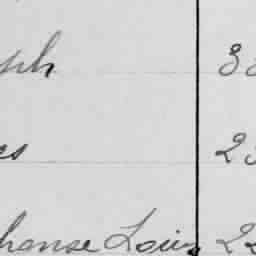 eph 3
es 2
hanse Louis 22